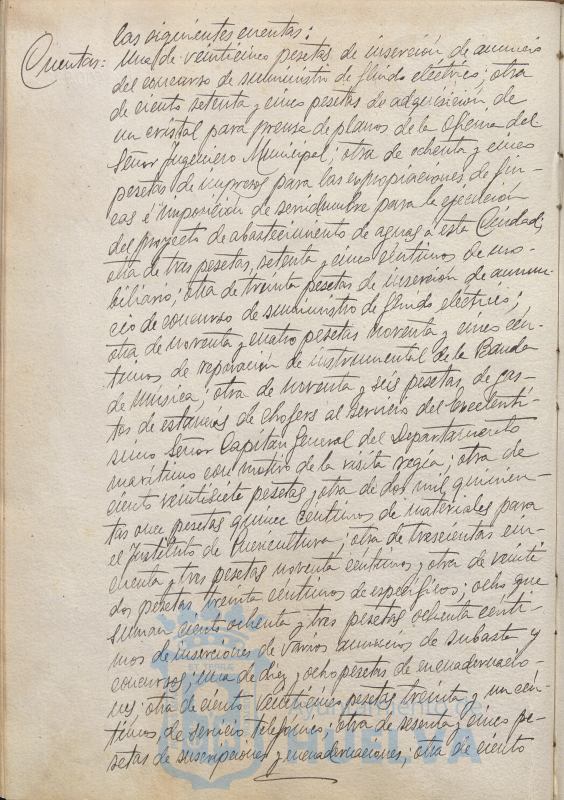 las siguientes cuentas:
Cuentas: Una de veinticinco pesetas de inserción de anuncio
del concurso de suministro de flúido eléctrico; otra
de ciento setenta y cinco pesetas de adquisición de
un cristal para prensa de planos de la Oficina del
Señor Ingeniero Municipal; otra de ochenta y cinco
pesetas de impresos para las expropiaciones de fin-
cas é imposición de servidumbre para la ejecución
del proyecto de abastecimiento de aguas a esta Ciudad;
otra de tres pesetas, setenta y cinco céntimos de mo-
biliario; otra de treinta pesetas de inserción de anun-
cio de concurso de suministro de flúido eléctrico;
otra de noventa y cuatro pesetas noventa y cinco cén-
timos de reparación de instrumental de la Banda
de música; otra de noventa y seis pesetas, de gas-
tos de estancias de chofers al servicio del Excelentí-
simo Señor Capitán General del Departamento
marítimo con motivo de la visita regia; otra de
ciento veintisiete pesetas; otra de dos mil quinien-
tas once pesetas quince céntimos de materiales para
el Instituto de Puericultura; otra de trescientas cin-
cuenta y tres pesetas noventa céntimos; otra de veinti
dos pesetas treinta céntimos de específicos; ocho que
suman ciento ochenta y tres pesetas ochenta cénti-
mos de inserciones de varios anuncios de subasta y
concursos; una de diez y ocho pesetas de encuadernacio-
nes; otra de ciento veinticinco pesetas treinta y un cén-
timos de servicio telefónico; otra de sesenta y cinco pe-
setas de suscripciones y encuadernaciones; otra de ciento
Ayuntamiento de
HUELVA